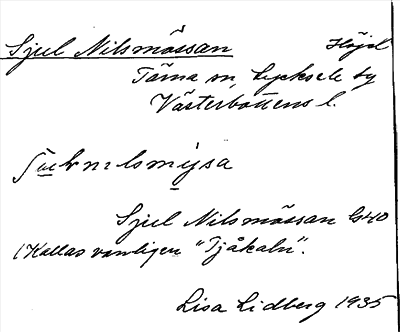 Sjul Nilsmössan Höjd
Tärna sn, Lycksele tg
Västerbottens l.
Sjul Nilsmössan G40
(Kallas vanligen "Tjåkaln".
Lisa Lidberg 1935